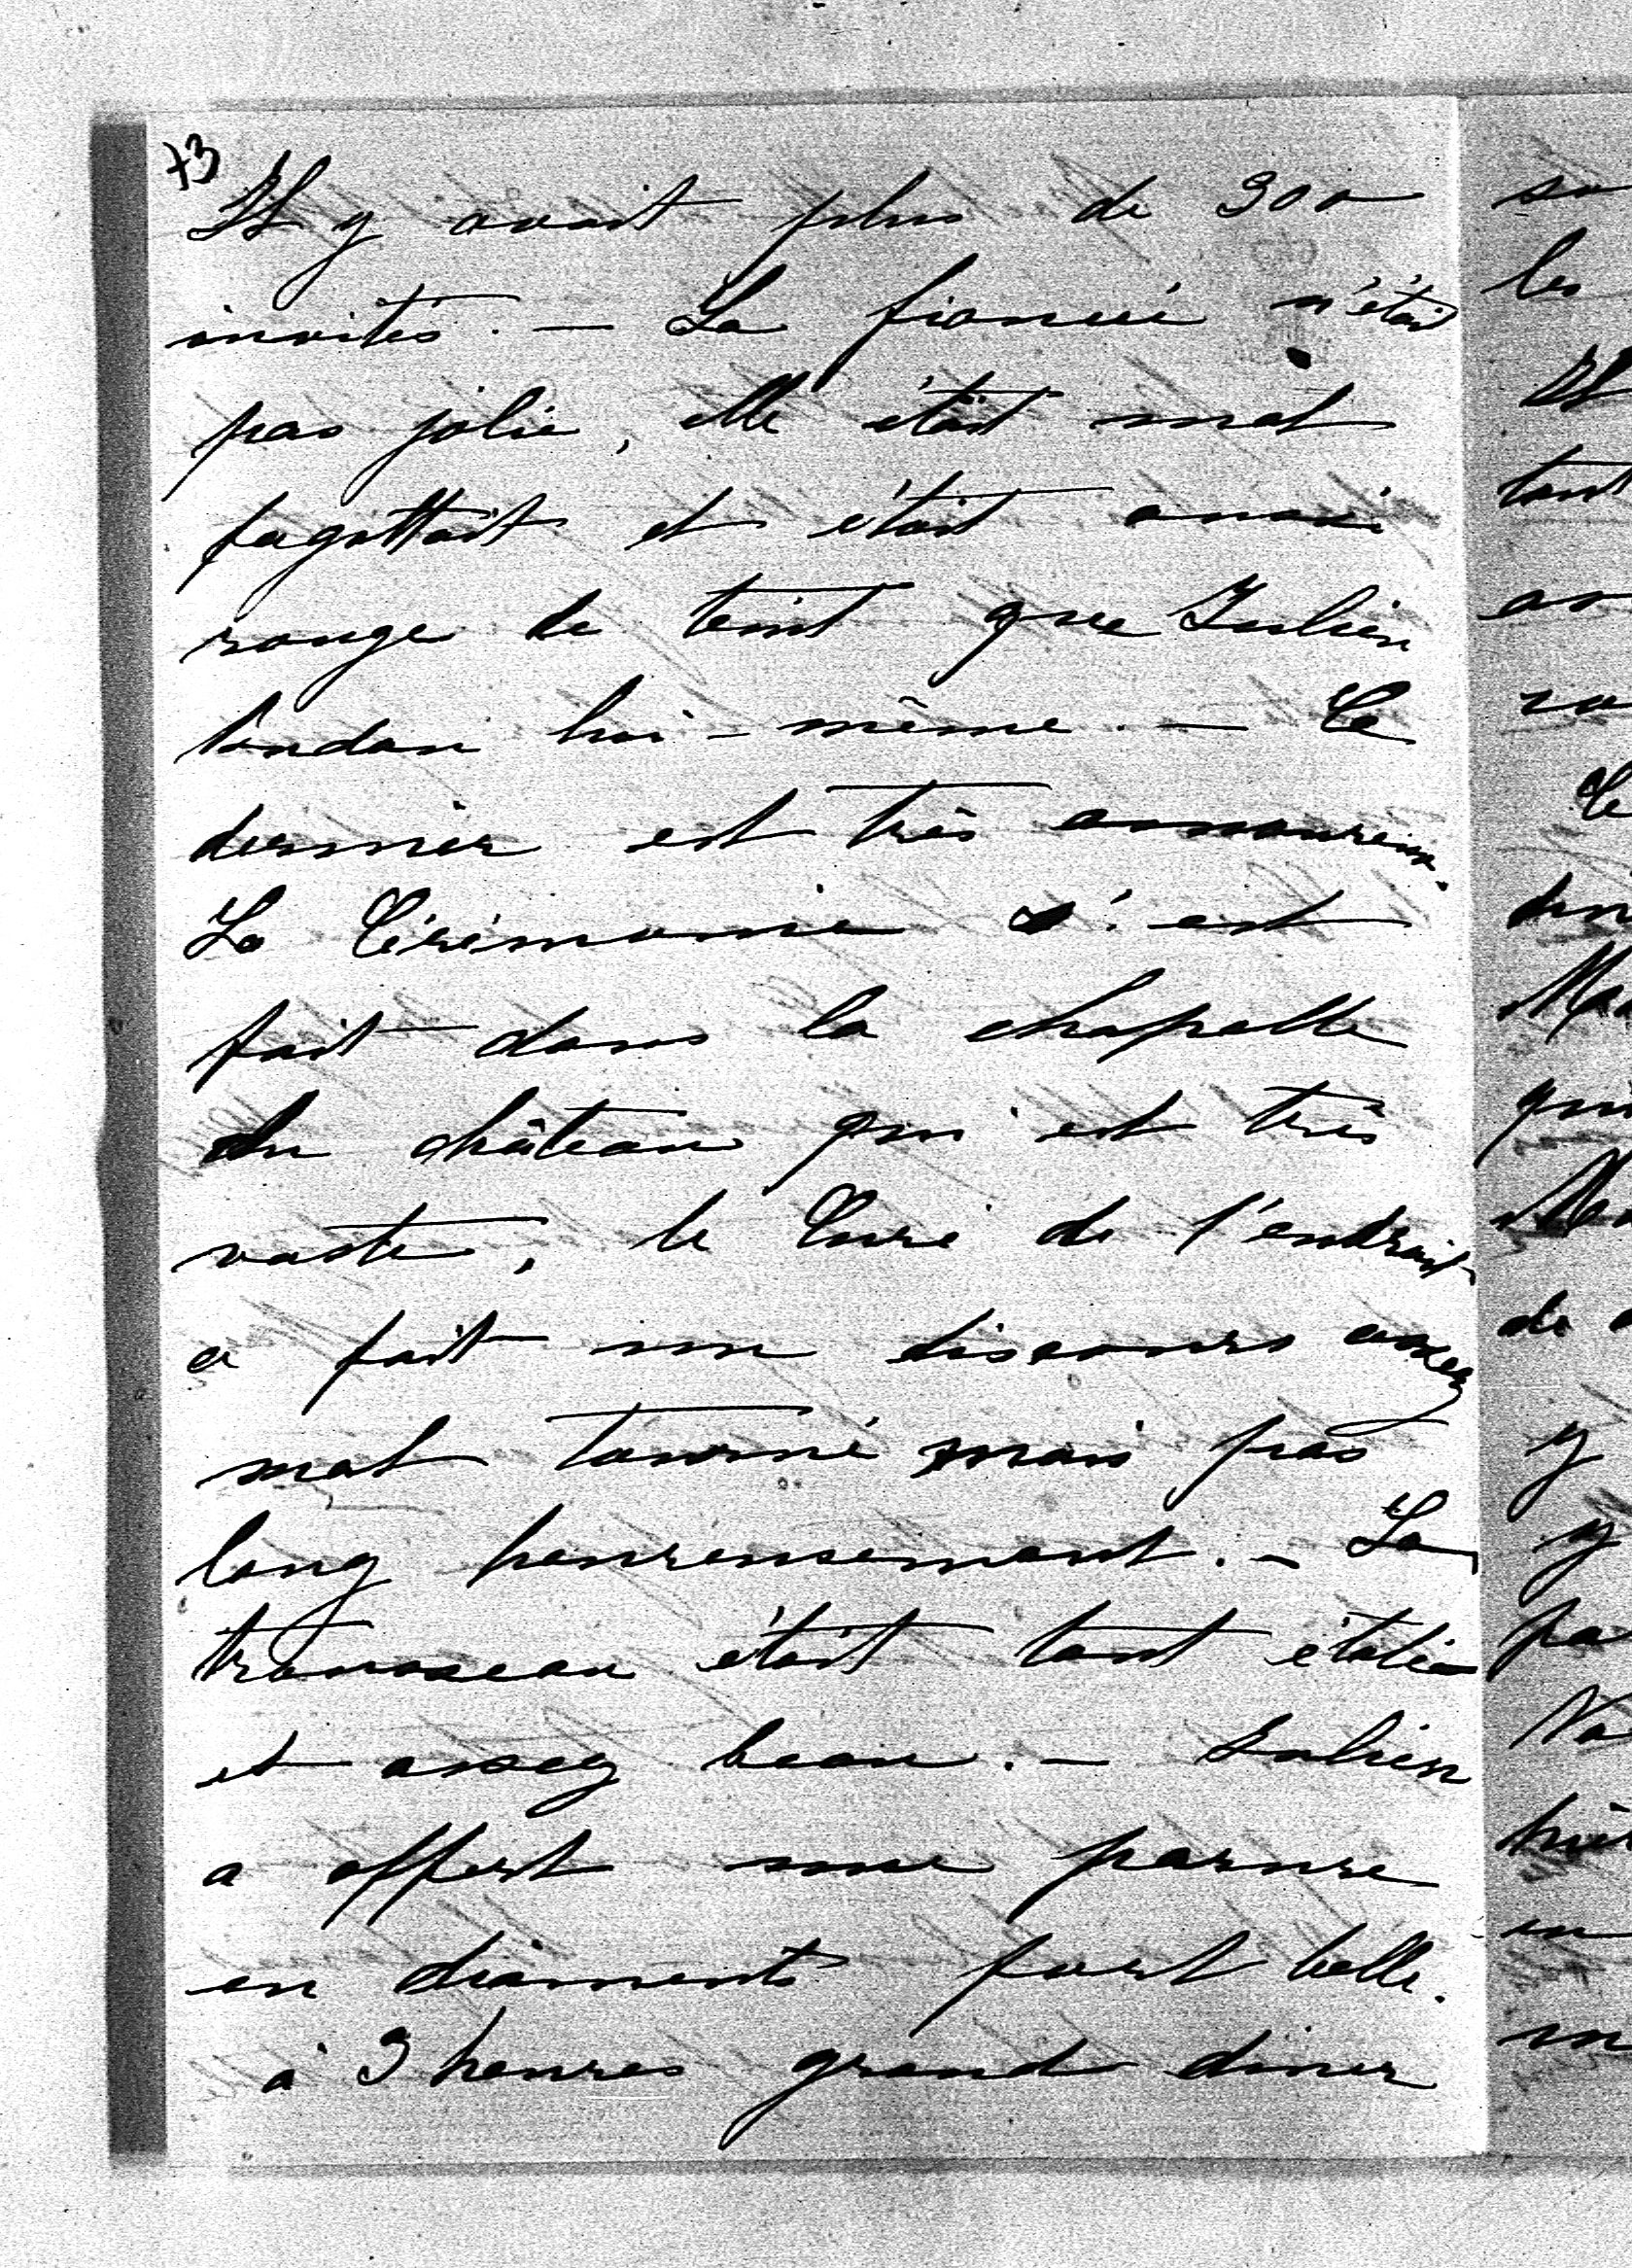 73
Il y avait plus de 300
invités. — La fiancée n'était
pas jolie, elle était mal
fagottait et était aussi
rouge de teint que Julien
lui-même. — Ce
dernier est très amoureux.
La Cérémonie s'est
fait dans la chapelle
du château qui est très
vaste, le Curé de l'endroit
a fait un discours assez
mal tourné mais pas
long heureusement. — La
trousseau était tout étalé
et assez beau. — Julien
a offert une parure
en diamants fort belle.
à 3 heures grand diner
su
les
Il
tant
ro
Ce
qui
de
y
y
pa
en